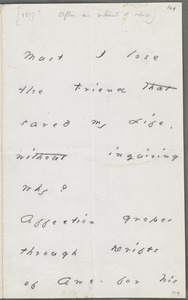 [1877]
After an interval of
Must I lose
the Friend that
saved my Life,
without inquiring
why?
Affection gropes
through Drifts
of Awe - for his